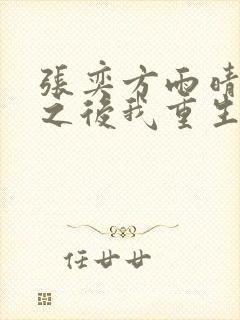 張奕方雨晴
之後我重生
任廿廿